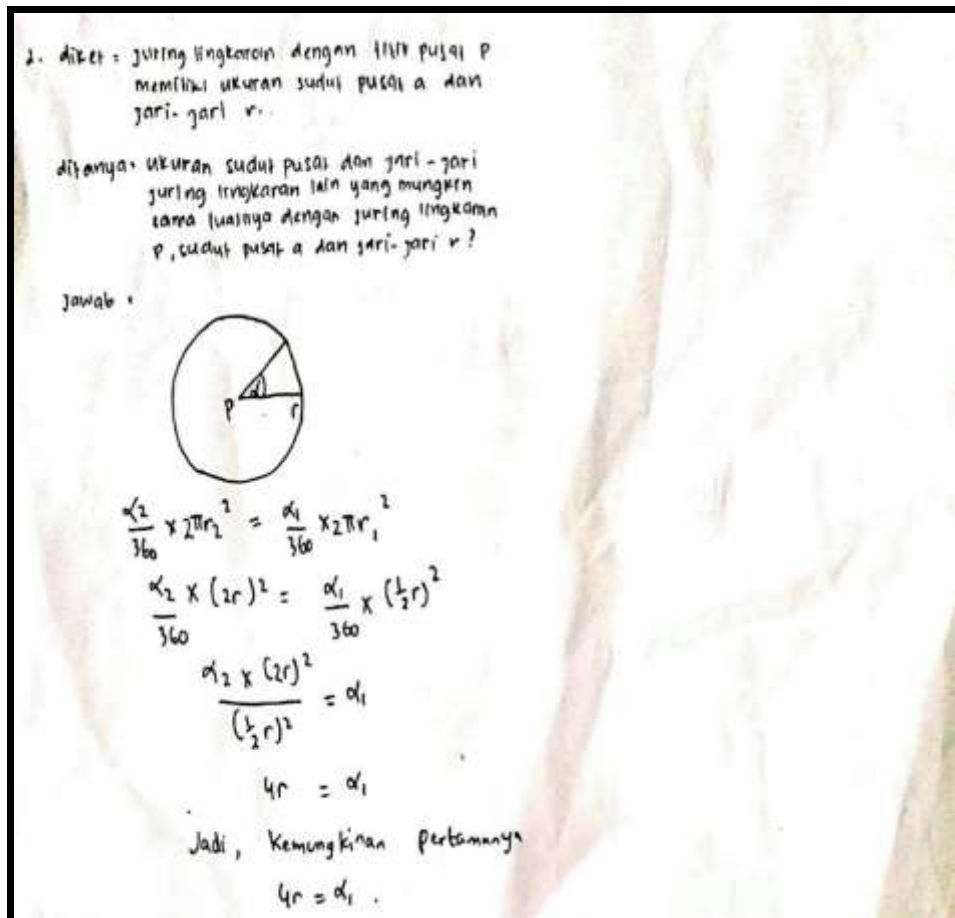 2. diket = juring lingkaran dengan titik pusat P
memiliki ukuran sudut pusat a dan
jari-jari r..
ditanya: ukuran sudut pusat dan jari-jari
juring lingkaran lain yang mungkin
sama luasnya dengan juring lingkaran
P, sudut pusat a dan jari-jari r?
Jawab :
α
P r
α₂/360 × 2πr₂² = α₁/360 × 2πr₁²
α₂/360 × (2r)² = α₁/360 × (½r)²
α₂ × (2r)² / (½r)² = α₁
4r = α₁
Jadi, Kemungkinan pertamanya
4r = α₁.